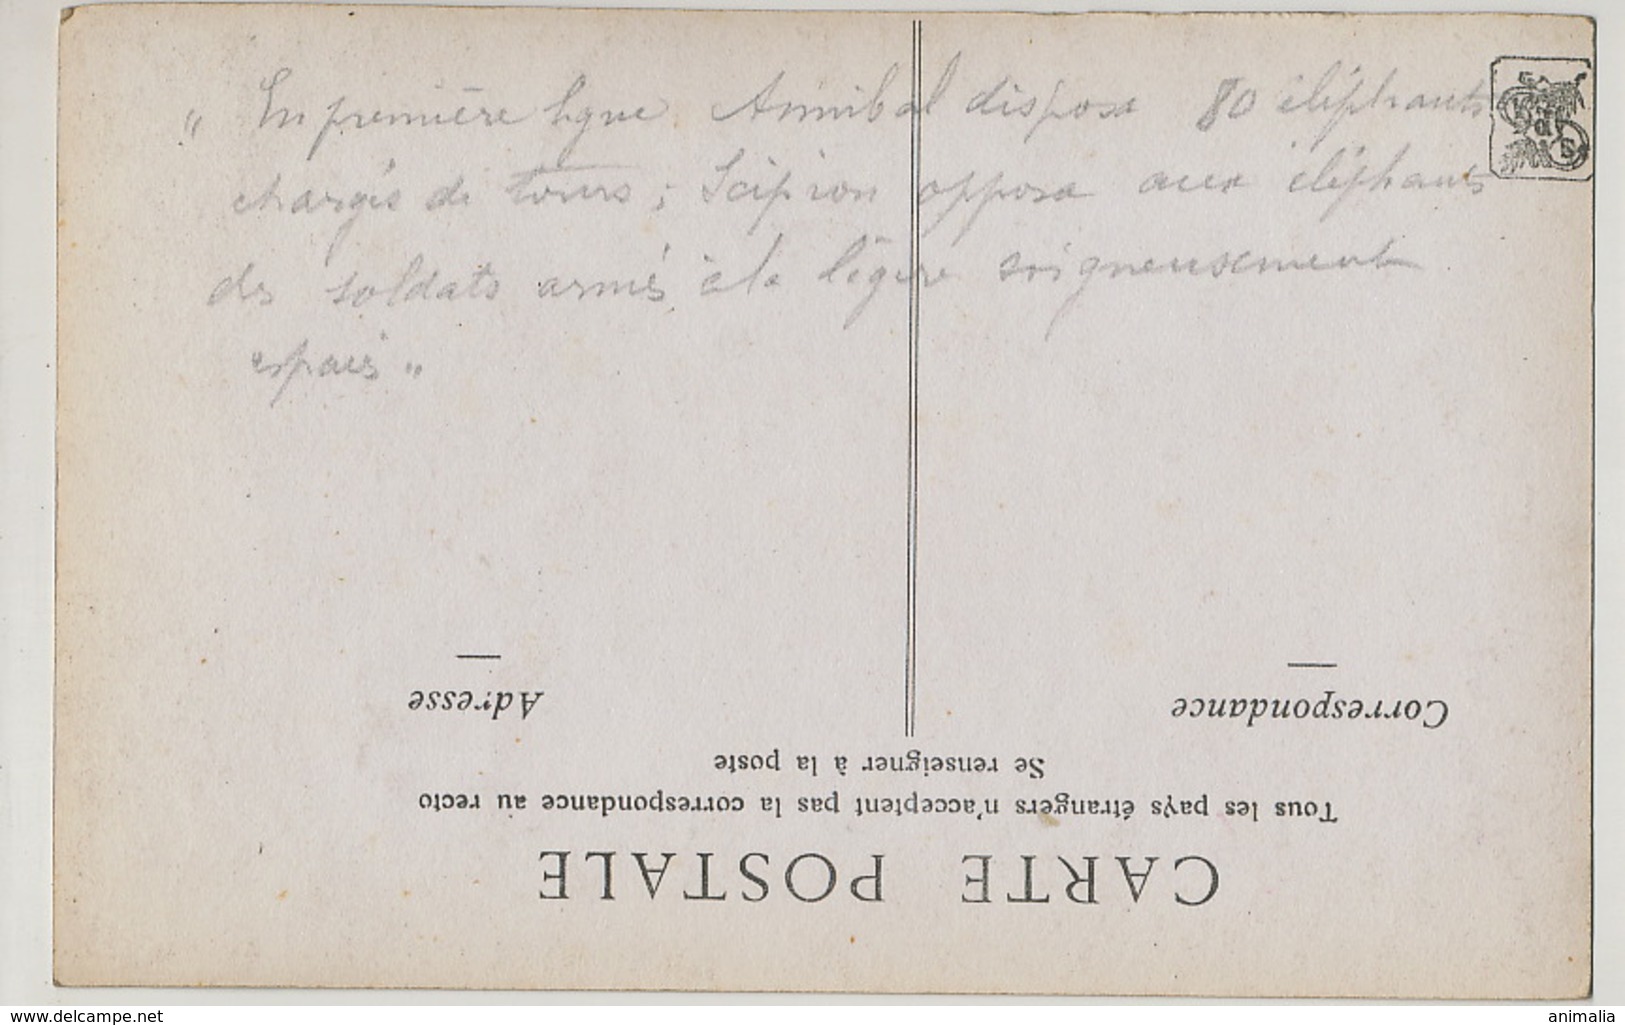 " En première ligne Annibal disposa 80 éléphants
chargés de tours ; Scipion opposa aux éléphants
des soldats armés à la légère soigneusement
espacés "
Adresse
Correspondance
Se renseigner à la poste
Tous les pays étrangers n'acceptent pas la correspondance au recto
CARTE POSTALE
www.delcampe.net
animalia